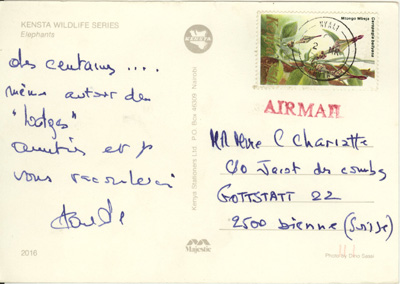 KENSTA WILDLIFE SERIES
Elephants
des centaines ....
même autour des
"lodges"
amitiés et je
vous raconterai
2016
KENSTA
Kensta Stationers Ltd. P.O. Box 46009 Nairobi
Majestic
NYALI
Mtungu Mbeja
AIRMAIL
C Charlotte
C/o Jacot des Combes
GOTTSTATT 22
2500 Bienne (Suisse)
Photo by Dino Sassi